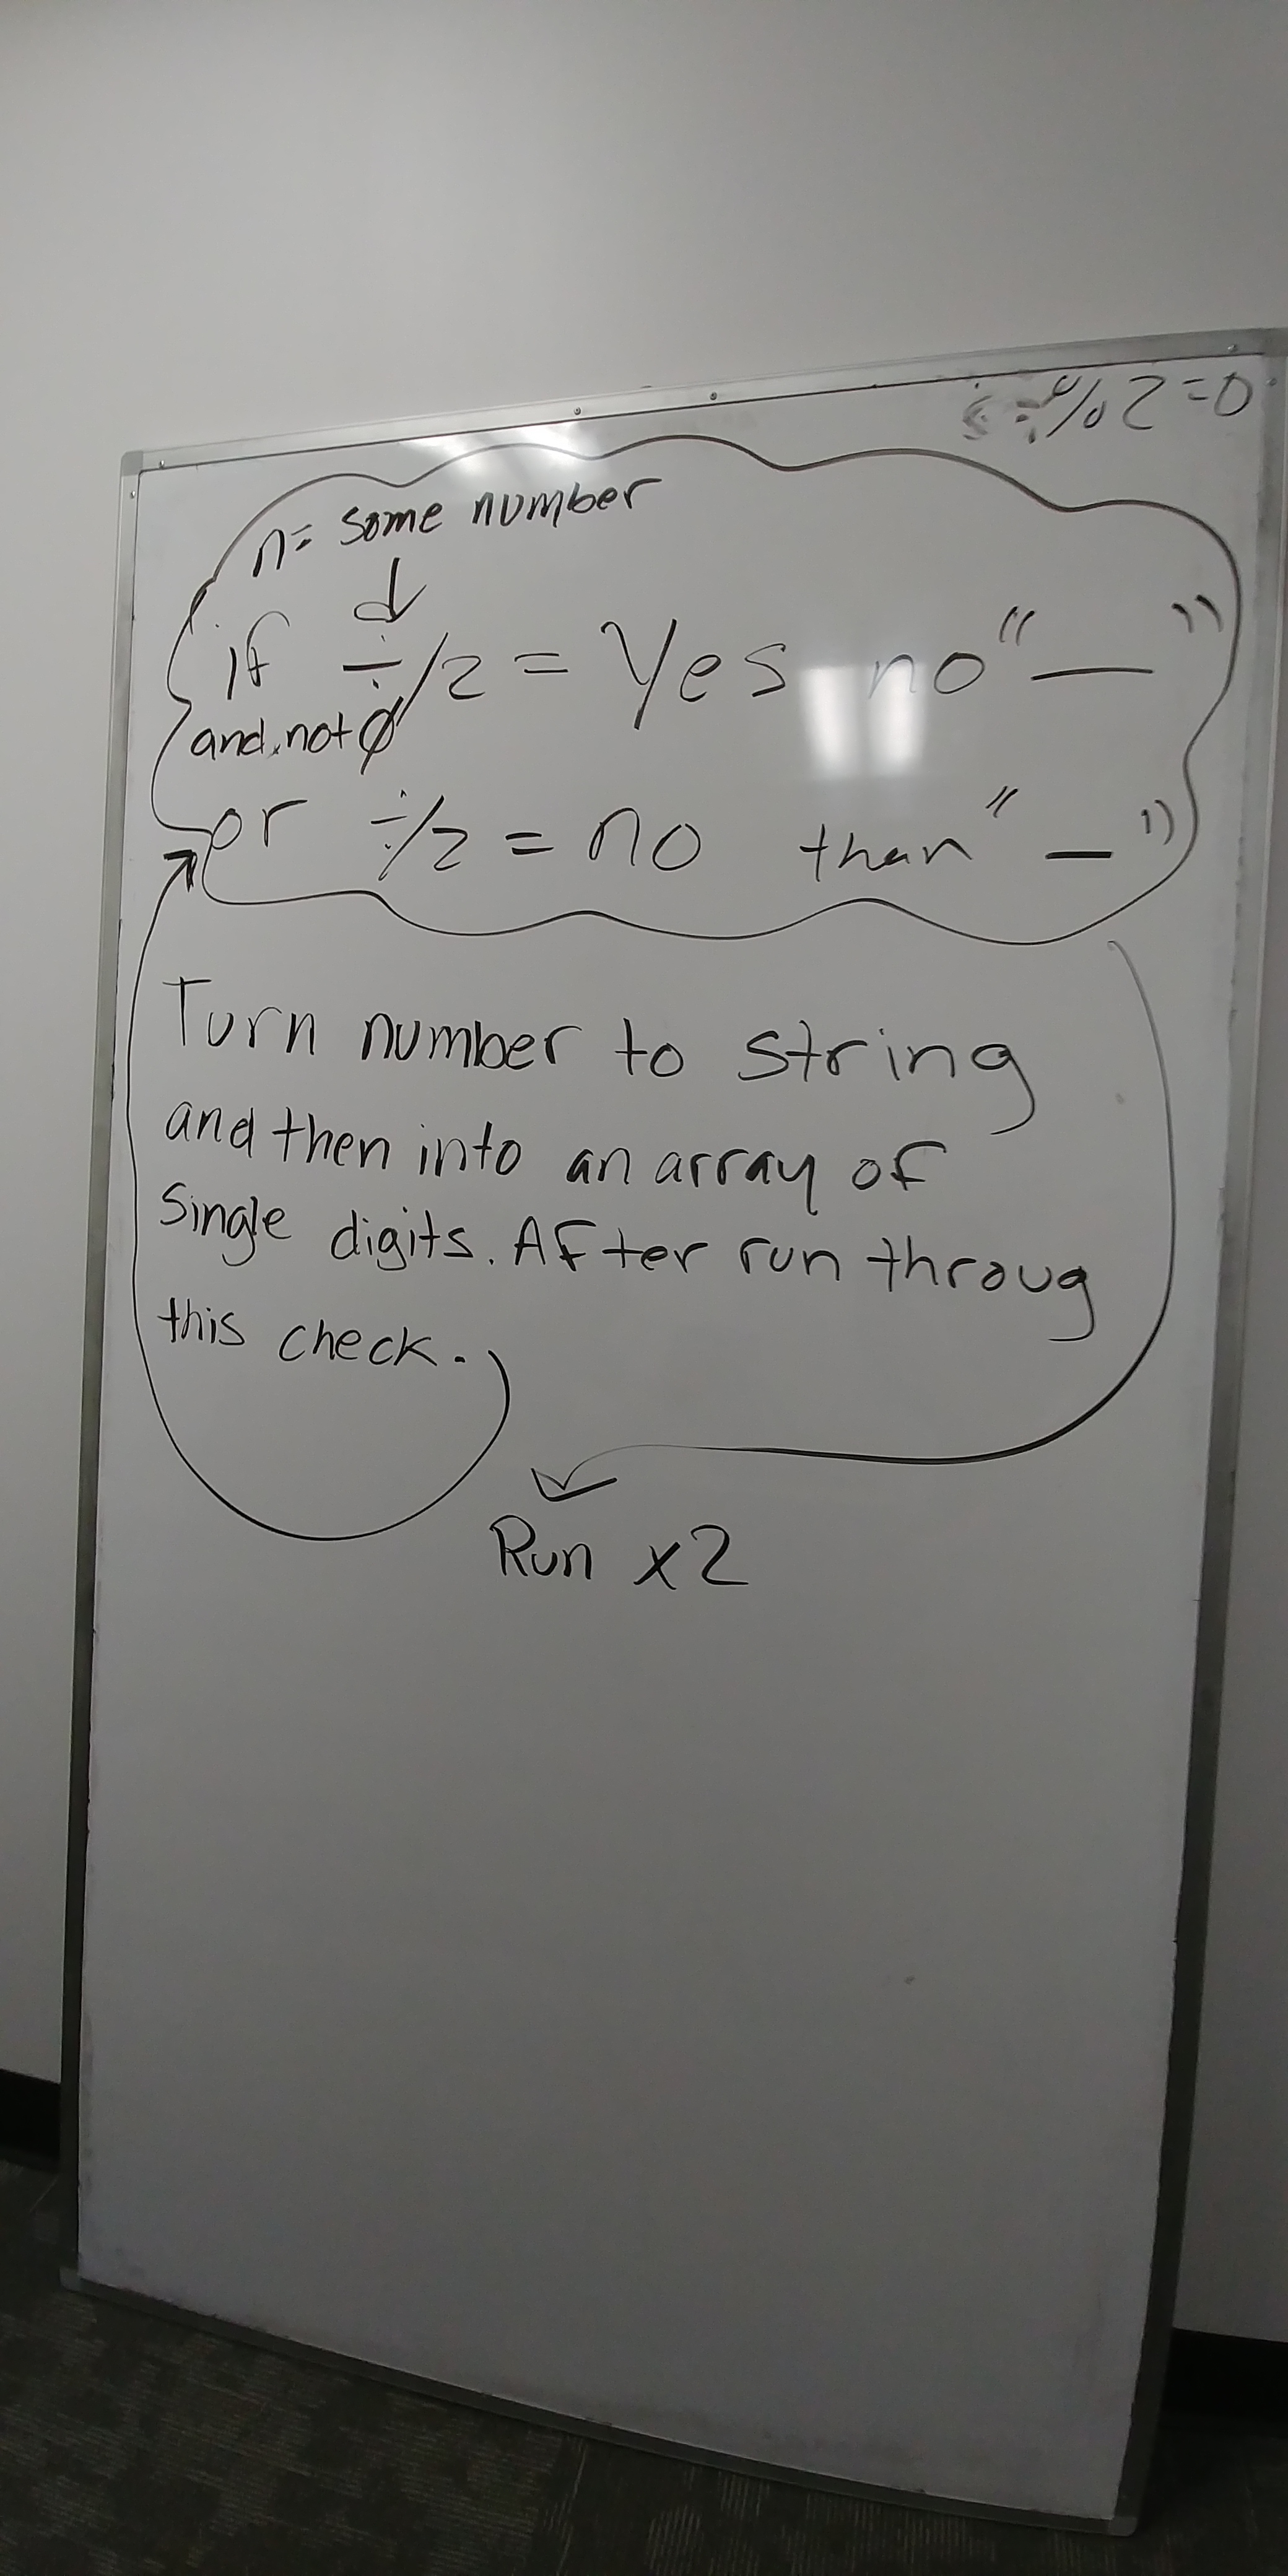 %2=0
n= some number
if ÷/2 = Yes no "—"
and not 0
or ÷/2 = no than "—"
Turn number to string
and then into an array of
single digits. After run throug
this check.
Run x2